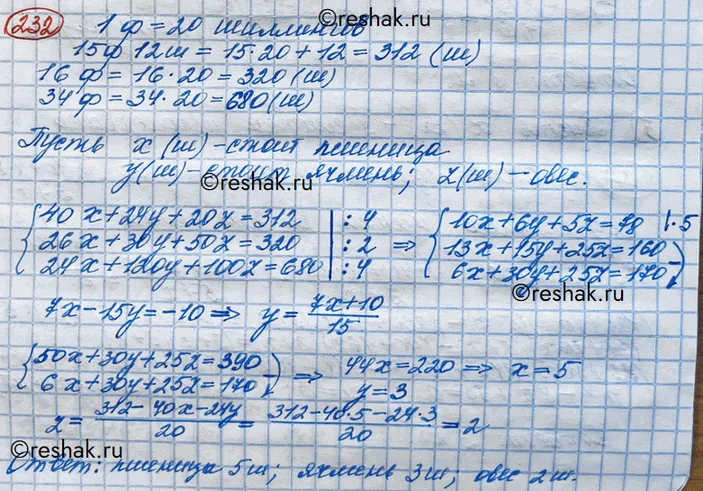 ©reshak.ru
232
1 ф = 20 шиллингов
15ф 12ш = 15·20+12 = 312 (ш)
16 ф = 16·20 = 320 (ш)
34 ф = 34·20 = 680(ш)
Пусть x (ш) - стоит пшеница
y(ш) - стоит ячмень; z(ш) - овес.
©reshak.ru
{40x+24y+20z=312 | :4 {10x+6y+5z=78 |·5
{26x+30y+50z=320 | :2 ⇒ {13x+15y+25z=160
{24x+120y+100z=680 | :4 {6x+30y+25z=170
©reshak.ru
7x-15y=-10 ⇒ y = (7x+10)/15
{50x+30y+25z=390 ⇒ 44x=220 ⇒ x=5
{6x+30y+25z=170 y=3
z = (312-40x-24y)/20 = (312-40·5-24·3)/20 = 2
©reshak.ru
Ответ: пшеница 5ш; ячмень 3ш; овес 2ш.
©reshak.ru